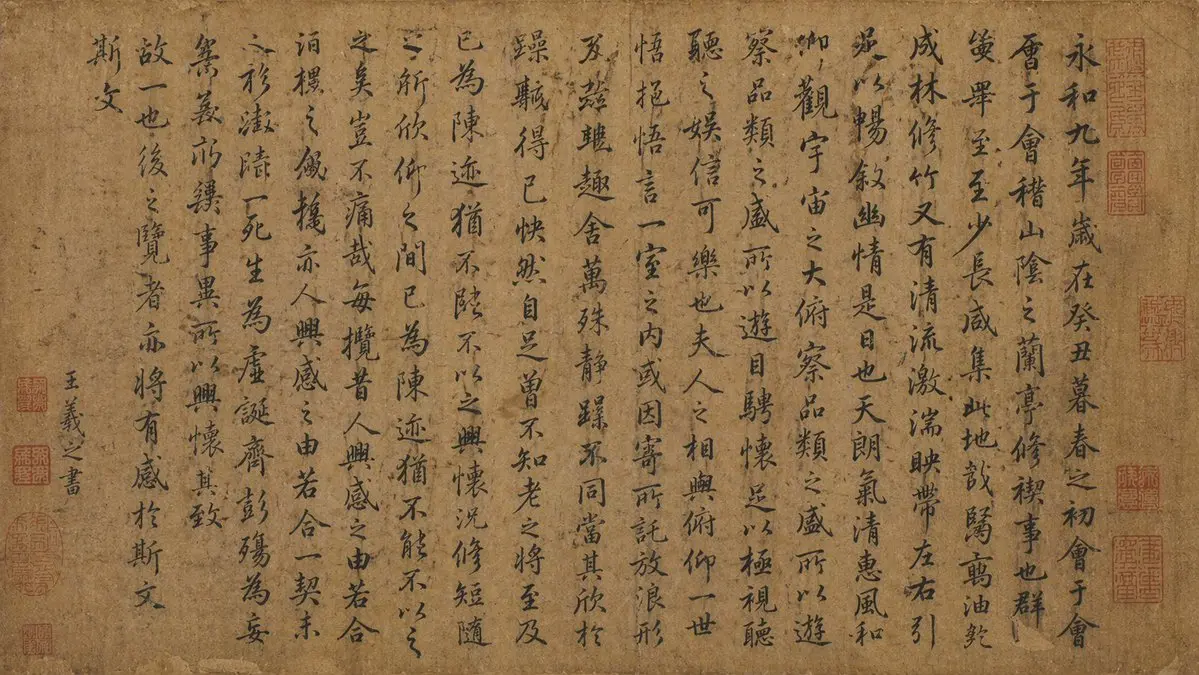 永和九年歲在癸丑暮春之初會于會
會于會稽山陰之蘭亭修禊事也群
畢至至少長咸集此地
成林修竹又有清流激湍映帶左右引
足以暢敘幽情是日也天朗氣清惠風和
仰觀宇宙之大俯察品類之盛所以遊
察品類之盛所以遊目騁懷足以極視聽
聽之娛信可樂也夫人之相與俯仰一世
悟抱悟言一室之內或因寄所託放浪形
及趣舍萬殊靜躁不同當其欣於
躁得已快然自足曾不知老之將至及
已為陳迹猶不不以之興懷況修短隨
之所欣仰之間已為陳迹猶不能不以之
之矣豈不痛哉每攬昔人興感之由若合
之亦人興感之由若合一契未
一死生為虛誕齊彭殤為妄
事異所以興懷其致
故一也後之覽者亦將有感於斯文
斯文
王羲之書